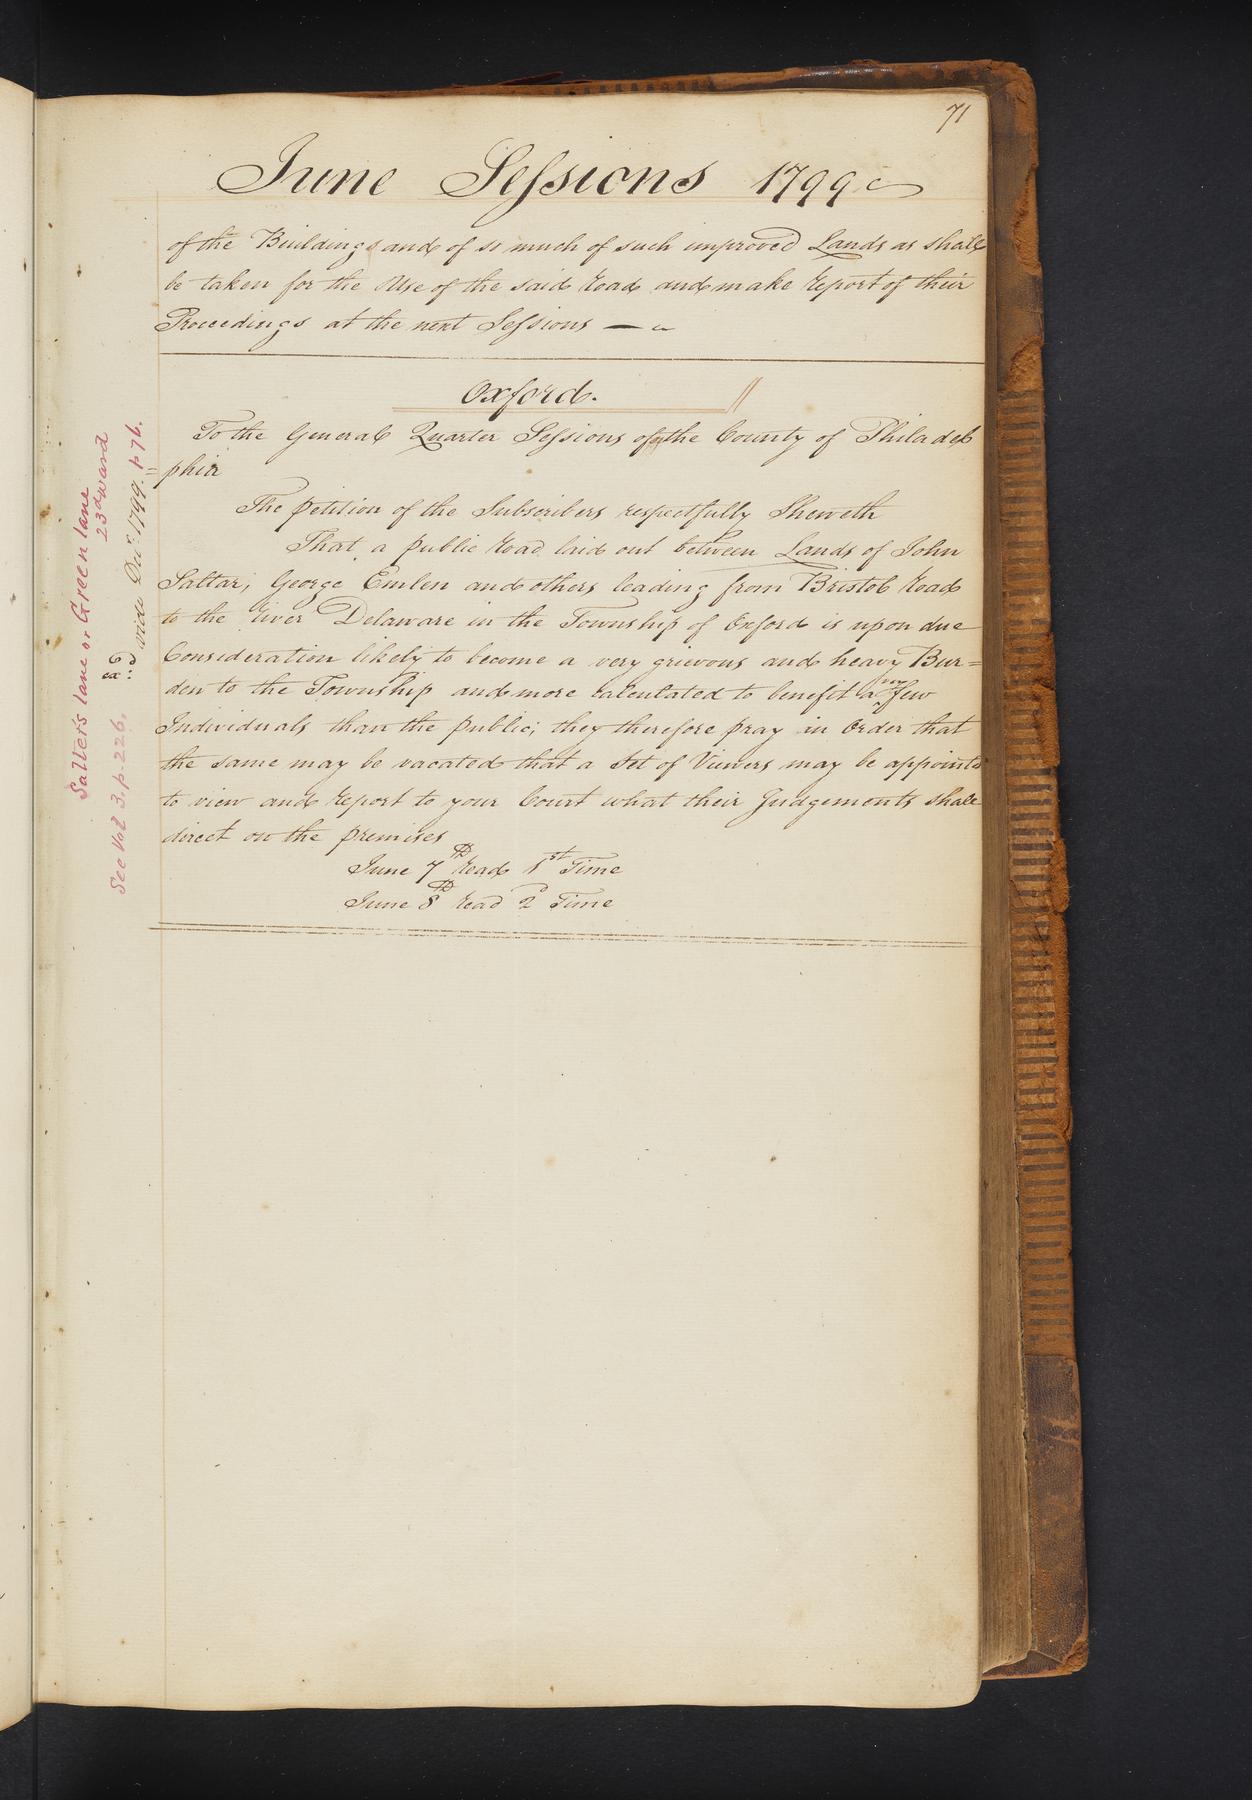 71
June Sessions 1799
of the Buildings and of so much of such improved Lands as shall
be taken for the Use of the said Road and make Report of their
Proceedings at the next Sessions —
Oxford.
To the General Quarter Sessions of the County of Philadel
=phia
The petition of the Subscribers respectfully Sheweth
That a public Road laid out between Lands of John
Saltar, George Emlen and others leading from Bristol Road
to the River Delaware in the Township of Oxford is upon due
Consideration likely to become a very grievous and heavy Bur=
den to the Township and more calculated to benefit a few
Individuals than the public; they therefore pray in Order that
the same may be vacated that a Set of Viewers may be appointed
to view and Report to your Court what their Judgements shall
direct on the premises
June 7th Read 1st Time
June 8th Read 2d Time
Salter's lane or Green lane
23d ward
exd. vide Decr. 1799. p 76.
See Vol 3. p. 226.